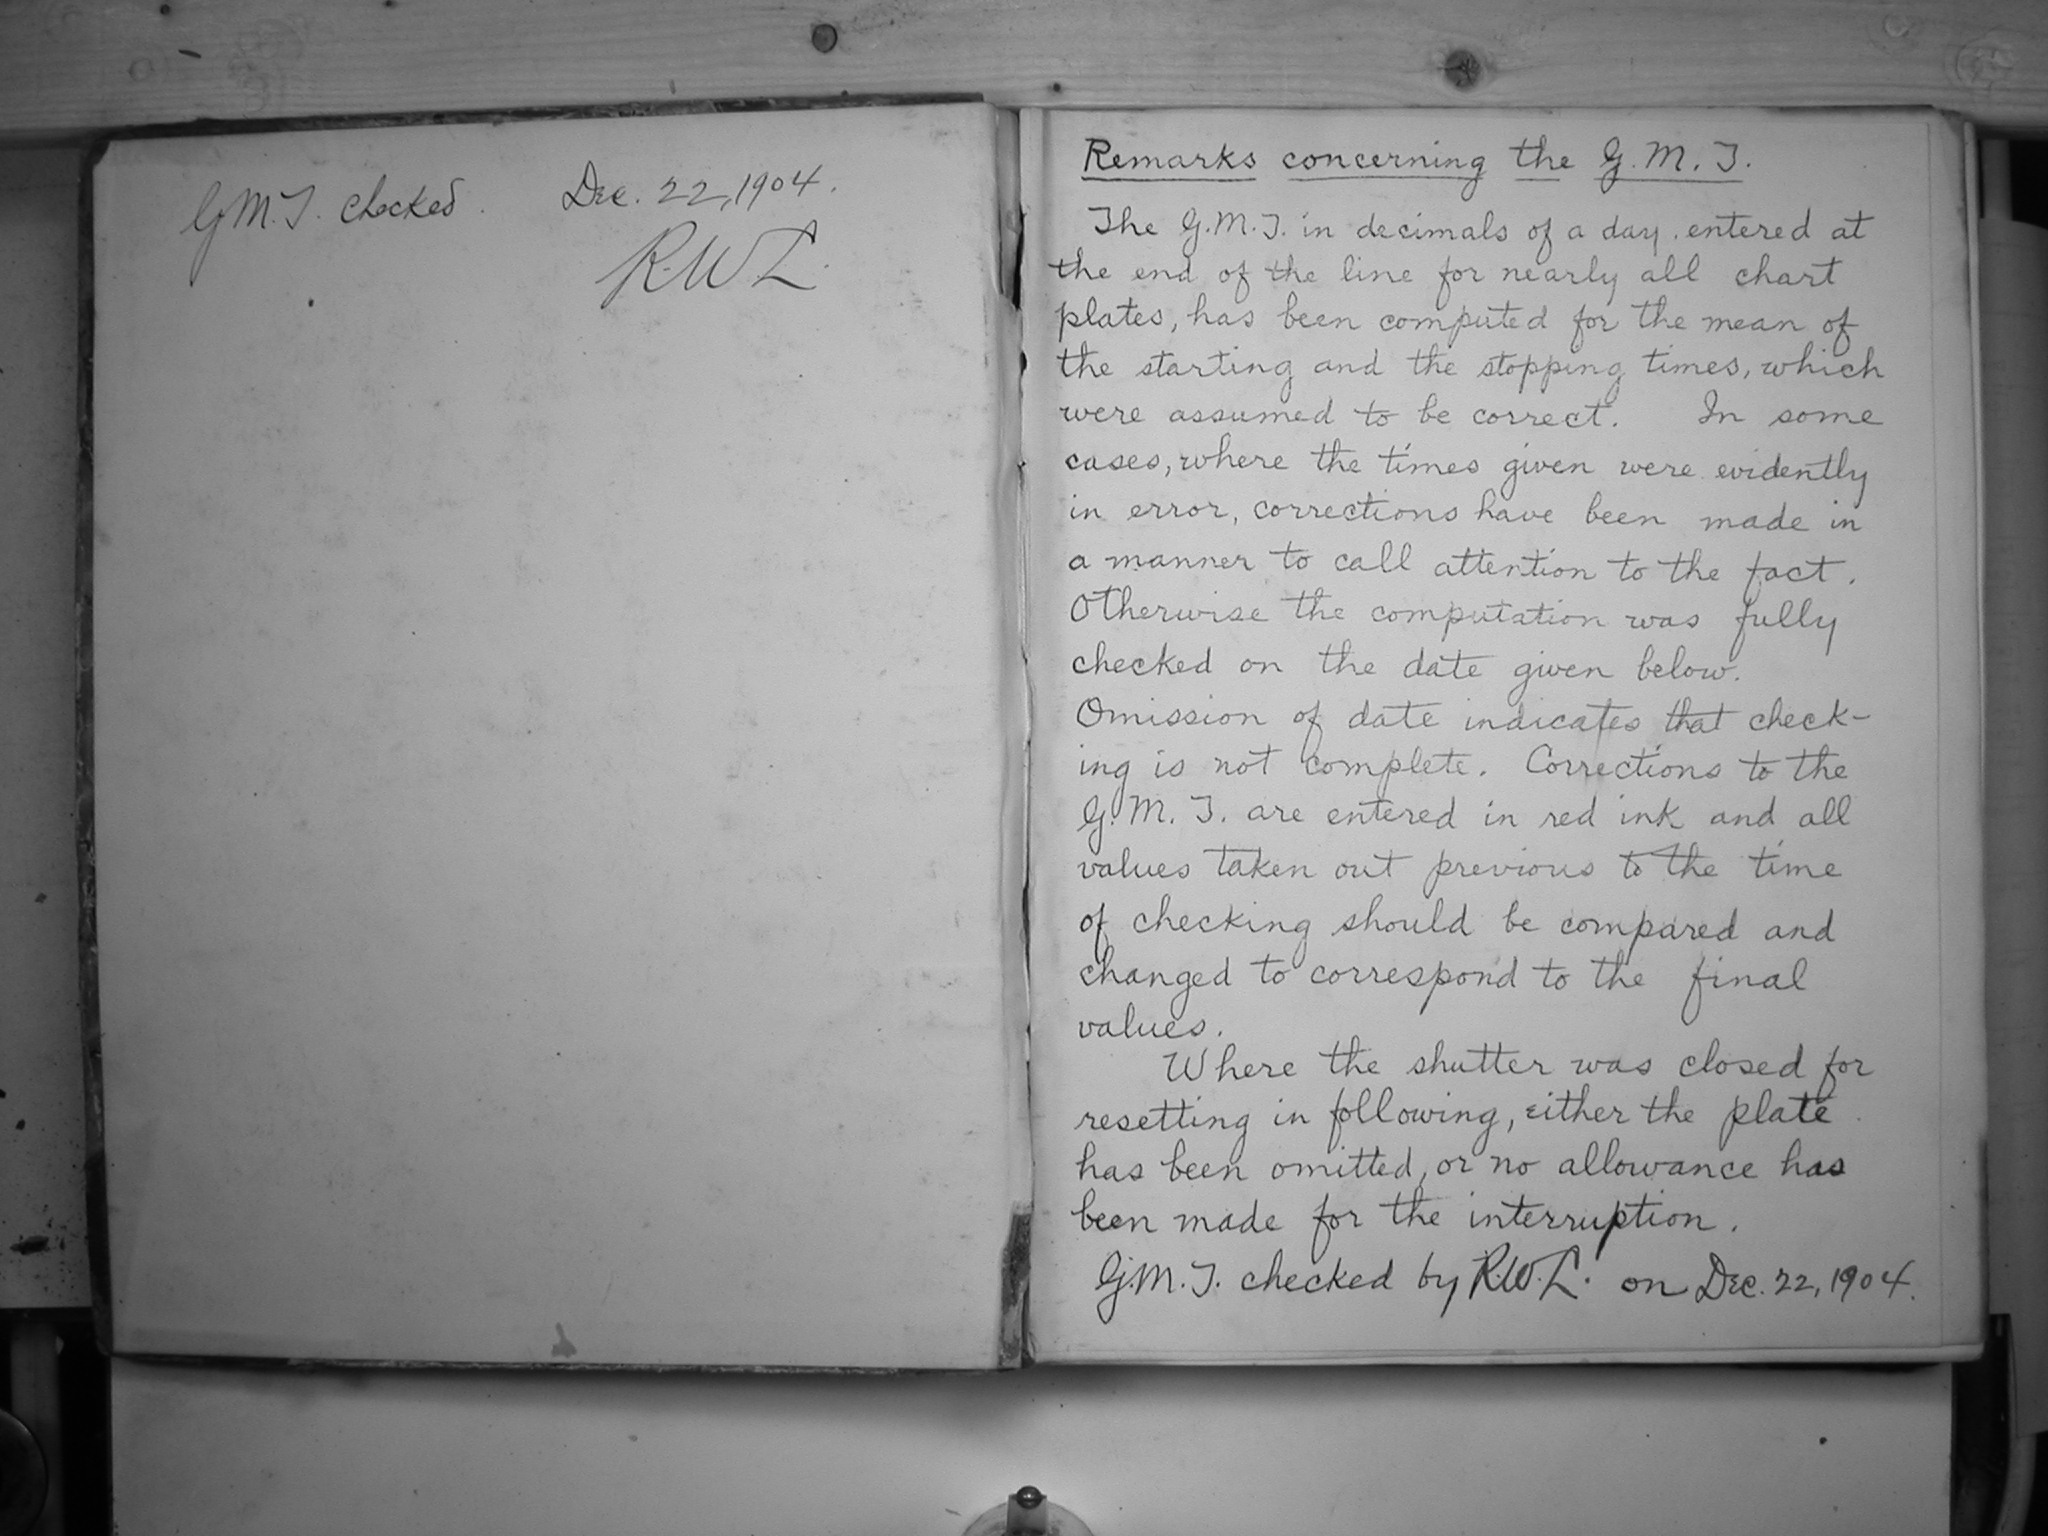 G.M.T. checked. Dec. 22, 1904.
R.W.L.
Remarks concerning the G.M.T.
The G.M.T. in decimals of a day, entered at
the end of the line for nearly all chart
plates, has been computed for the mean of
the starting and the stopping times, which
were assumed to be correct. In some
cases, where the times given were evidently
in error, corrections have been made in
a manner to call attention to the fact.
Otherwise the computation was fully
checked on the date given below.
Omission of date indicates that check-
ing is not complete. Corrections to the
G.M.T. are entered in red ink and all
values taken out previous to the time
of checking should be compared and
changed to correspond to the final
values.
Where the shutter was closed for
resetting in following, either the plate
has been omitted, or no allowance has
been made for the interruption.
G.M.T. checked by R.W.L. on Dec. 22, 1904.